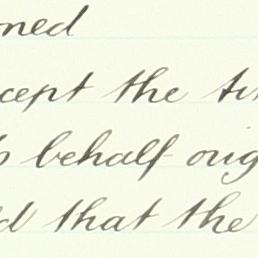 ned
cept the ti
behalf orig
d that the